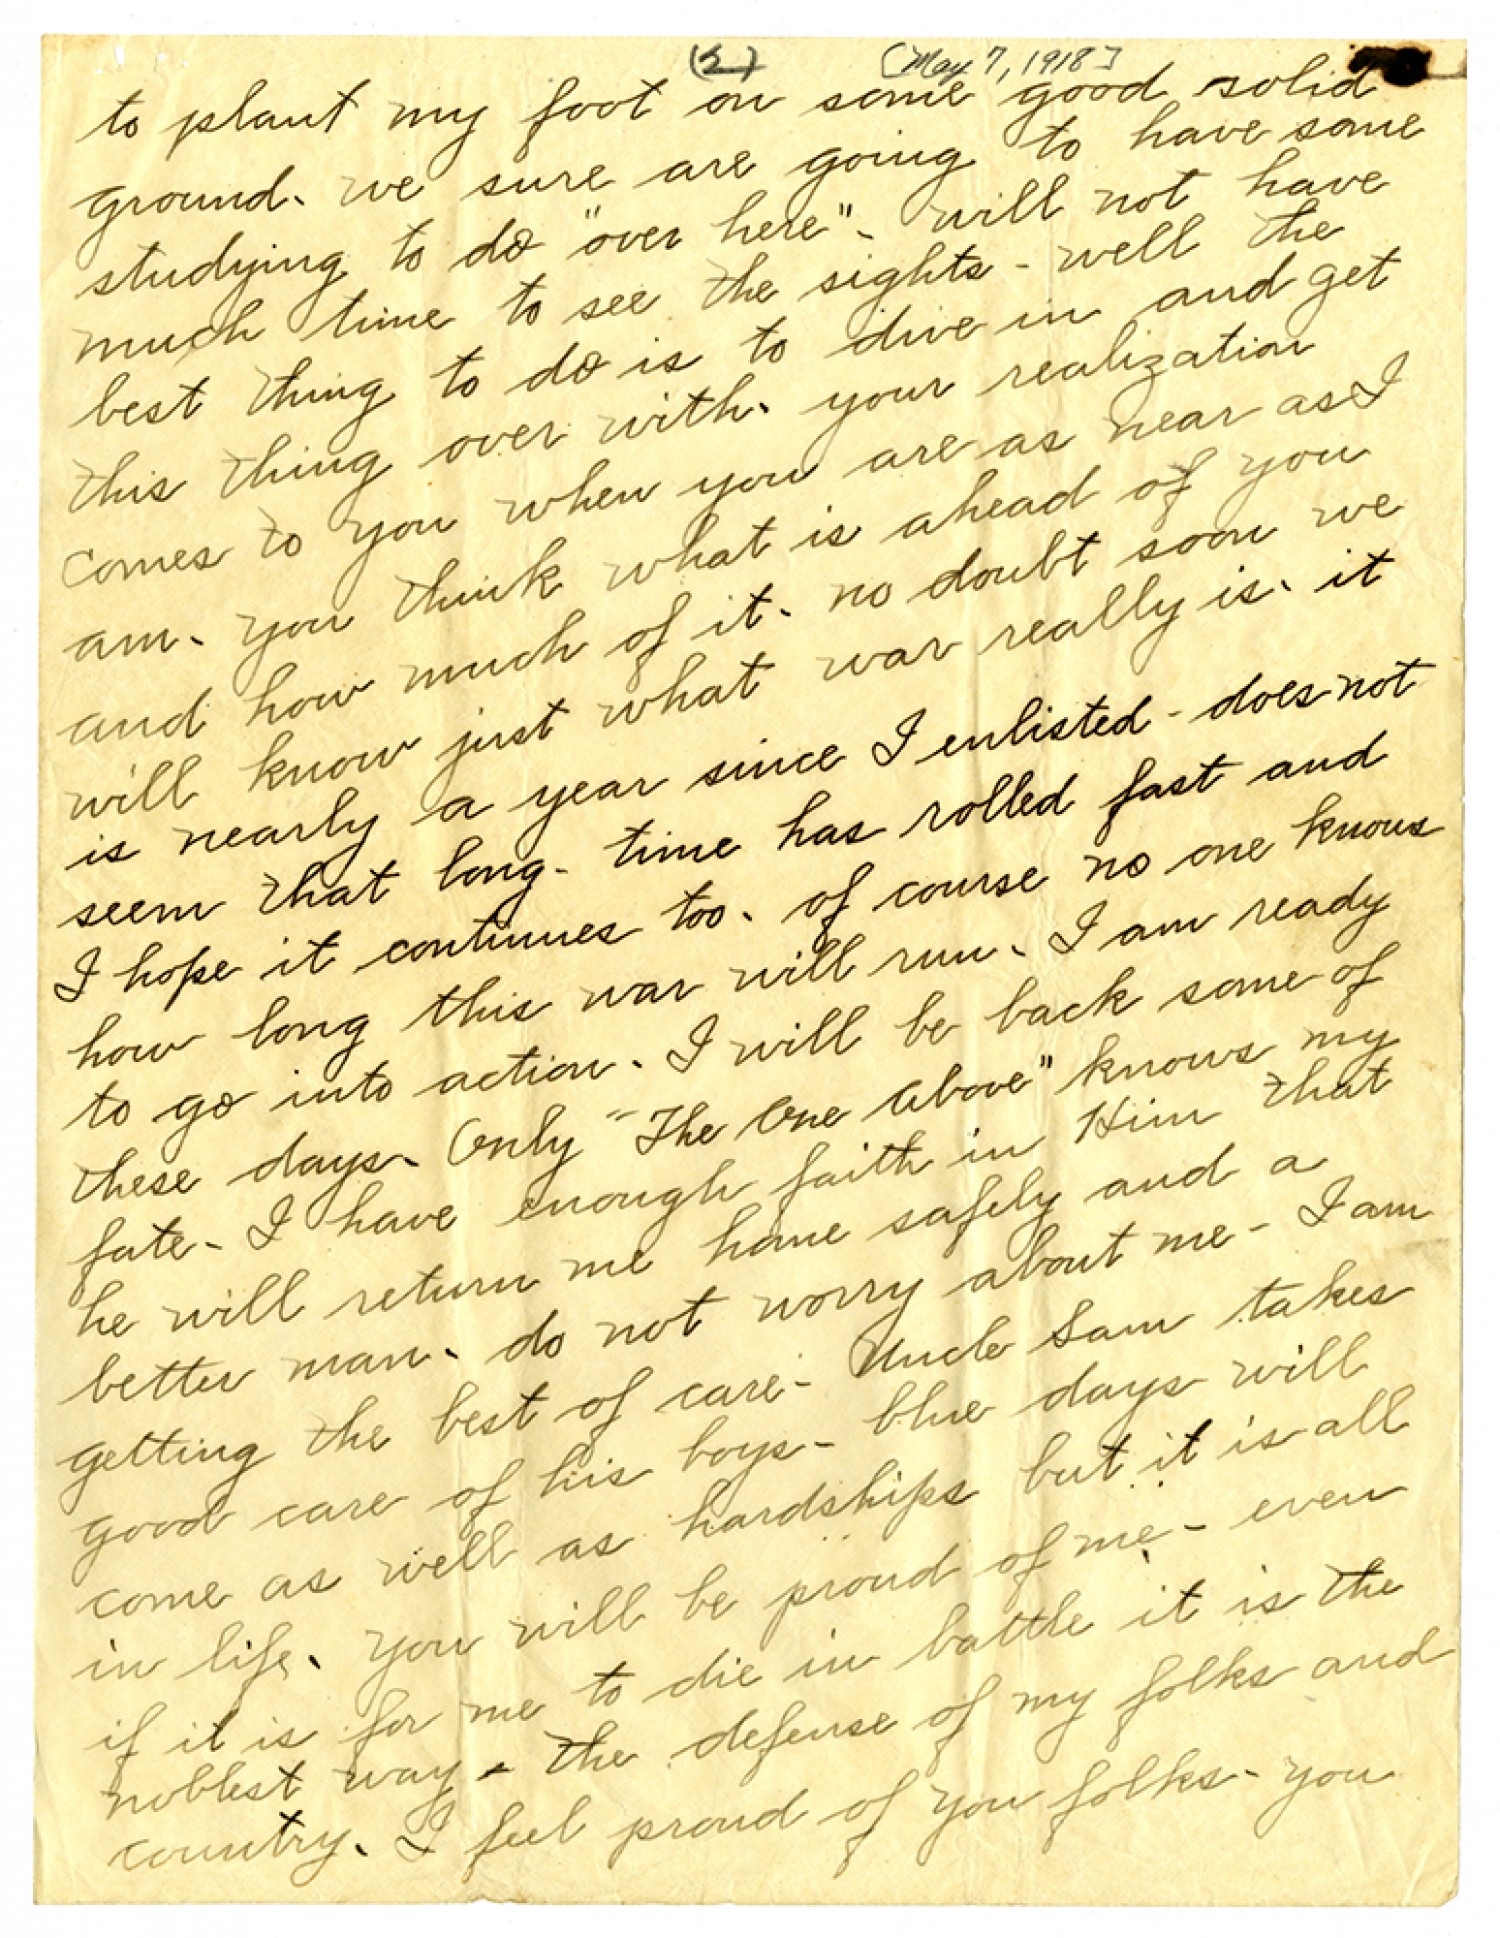 (2) [May 7, 1918]
to plant my foot on some good solid
ground. we sure are going to have some
studying to do "over here". will not have
much time to see the sights - well the
best thing to do is to dive in and get
this thing over with. your realization
comes to you when you are as near as I
am. you think what is ahead of you
and how much of it. no doubt soon we
will know just what war really is. it
is nearly a year since I enlisted - does not
seem that long - time has rolled fast and
I hope it continues too. of course no one knows
how long this war will run. I am ready
to go into action. I will be back some of
these days. Only "The One Above" knows my
fate - I have enough faith in Him that
he will return me home safely and a
better man. do not worry about me - I am
getting the best of care - Uncle Sam takes
good care of his boys - blue days will
come as well as hardships but it is all
in life. you will be proud of me - even
if it is for me to die in battle it is the
noblest way - the defense of my folks and
country. I feel proud of you folks - you